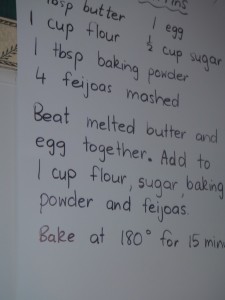 tbsp butter
1 egg
1 cup flour
½ cup sugar
1 tbsp baking powder
4 feijoas mashed
Beat melted butter and
egg together. Add to
1 cup flour, sugar, baking
powder and feijoas.
Bake at 180° for 15